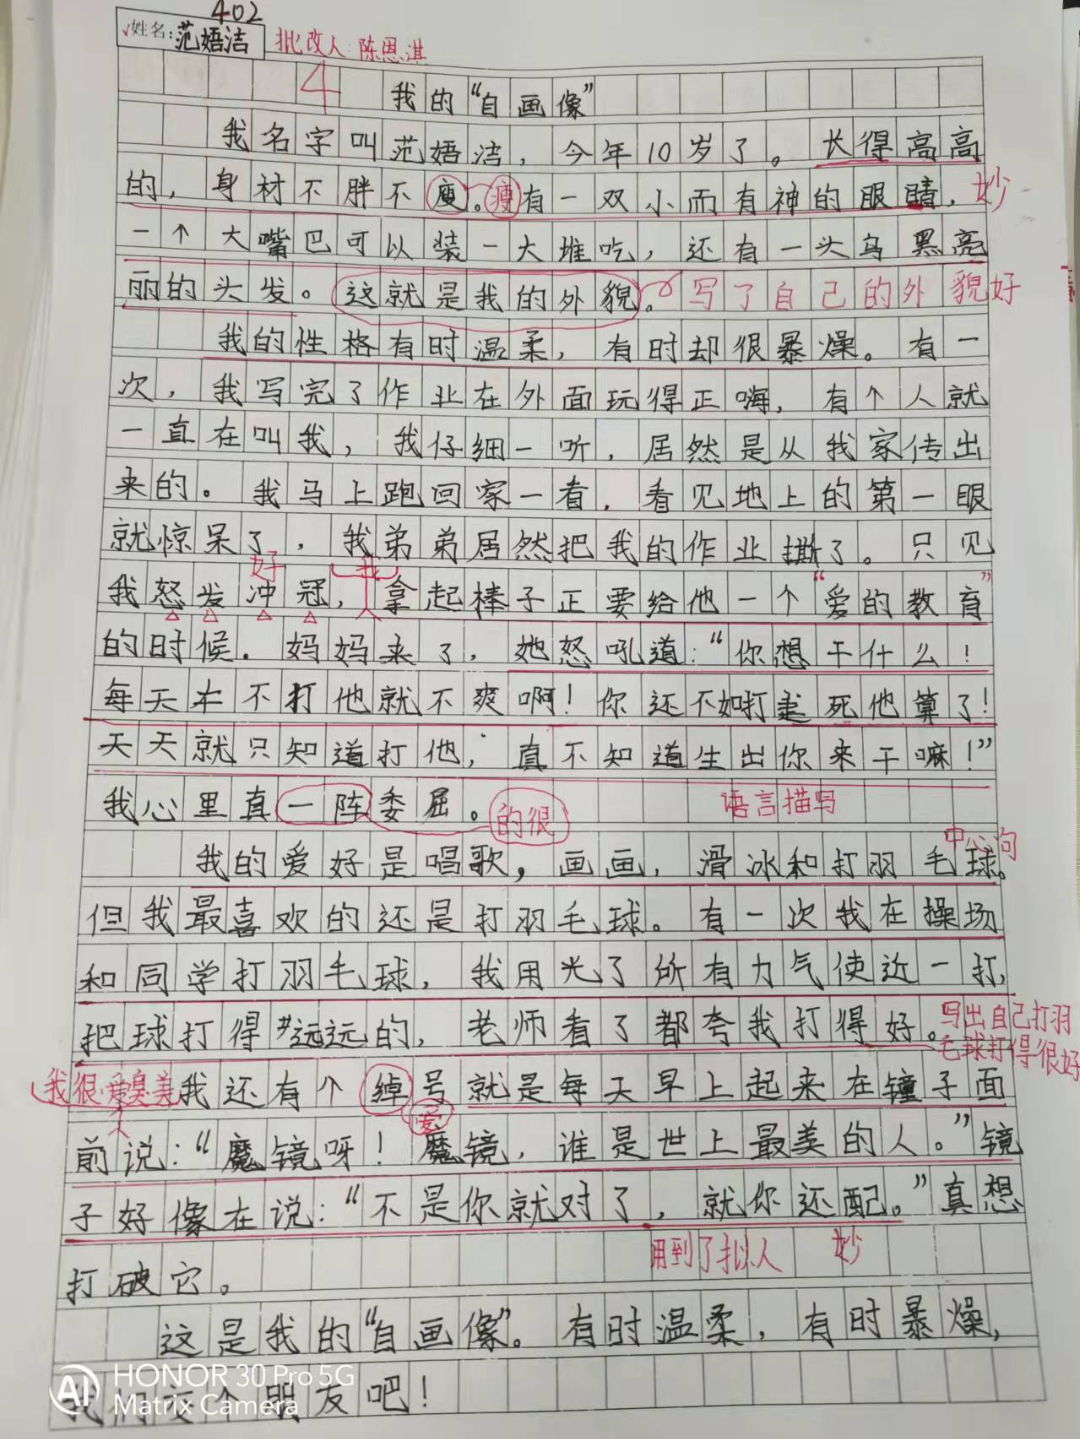 402
姓名：范娪洁 批改人：陈恩淇
4 我的“自画像”
我名字叫范娪洁，今年10岁了。长得高高
的，身材不胖不瘦。瘦有一双小而有神的眼睛，妙
一个大嘴巴可以装一大堆吃，还有一头乌黑亮
丽的头发。这就是我的外貌。写了自己的外貌好
我的性格有时温柔，有时却很暴燥。有一
次，我写完了作业在外面玩得正嗨，有个人就
一直在叫我，我仔细一听，居然是从我家传出
来的。我马上跑回家一看，看见地上的第一眼
就惊呆了，我弟弟居然把我的作业撕了。只见
好 我
我怒发冲冠，拿起棒子正要给他一个“爱的教育”
的时候．妈妈来了，她怒吼道：“你想干什么！
每天不打他就不爽啊！你还不如打死他算了！
天天就只知道打他，真不知道生出你来干嘛！”
我心里真一阵委屈。的很 语言描写
中心句
我的爱好是唱歌，画画，滑冰和打羽毛球。
但我最喜欢的还是打羽毛球。有一次我在操场
和同学打羽毛球，我用光了所有力气使近一打，
把球打得远远的，老师看了都夸我打得好。写出自己打羽
毛球打得很好
我很爱臭美我还有个绰号就是每天早上起来在镜子面
爱
前说：“魔镜呀！魔镜，谁是世上最美的人。”镜
子好像在说：“不是你就对了，就你还配。”真想
用到了拟人 妙
打破它。
这是我的“自画像”。有时温柔，有时暴燥，
我们交个朋友吧！
AI HONOR 30 Pro 5G
Matrix Camera